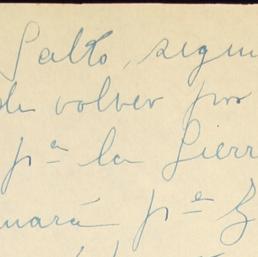 Salto, segun
de volver por
pª la Sierr
mará pª